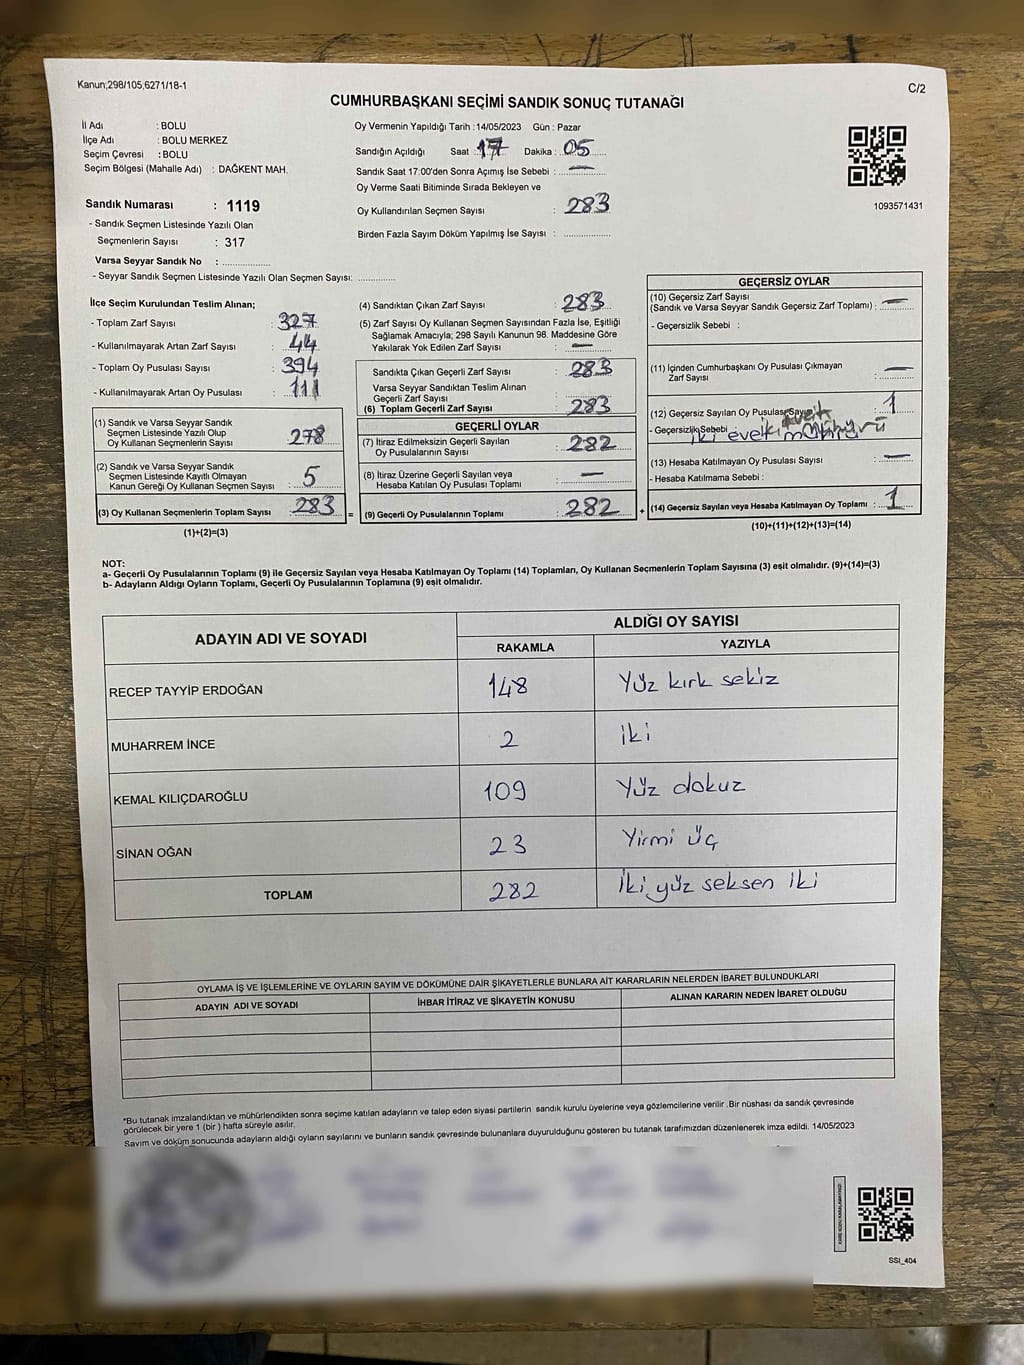 Kanun;298/105,6271/18-1
C/2
CUMHURBAŞKANI SEÇİMİ SANDIK SONUÇ TUTANAĞI
İl Adı : BOLU
İlçe Adı : BOLU MERKEZ
Seçim Çevresi : BOLU
Seçim Bölgesi (Mahalle Adı) : DAĞKENT MAH.
Sandık Numarası : 1119
- Sandık Seçmen Listesinde Yazılı Olan
Seçmenlerin Sayısı : 317
Varsa Seyyar Sandık No : ..............
- Seyyar Sandık Seçmen Listesinde Yazılı Olan Seçmen Sayısı: ............
Oy Vermenin Yapıldığı Tarih :14/05/2023 Gün : Pazar
Sandığın Açıldığı Saat : 17 Dakika : 05
Sandık Saat 17:00'den Sonra Açımış İse Sebebi : —
Oy Verme Saati Bitiminde Sırada Bekleyen ve
Oy Kullandırılan Seçmen Sayısı : 283
Birden Fazla Sayım Döküm Yapılmış İse Sayısı : ..............
1093571431
İlçe Seçim Kurulundan Teslim Alınan;
- Toplam Zarf Sayısı : 327
- Kullanılmayarak Artan Zarf Sayısı : 44
- Toplam Oy Pusulası Sayısı : 394
- Kullanılmayarak Artan Oy Pusulası : 111
(1) Sandık ve Varsa Seyyar Sandık
Seçmen Listesinde Yazılı Olup
Oy Kullanan Seçmenlerin Sayısı : 278
(2) Sandık ve Varsa Seyyar Sandık
Seçmen Listesinde Kayıtlı Olmayan
Kanun Gereği Oy Kullanan Seçmen Sayısı : 5
(3) Oy Kullanan Seçmenlerin Toplam Sayısı : 283
(1)+(2)=(3)
(4) Sandıktan Çıkan Zarf Sayısı : 283
(5) Zarf Sayısı Oy Kullanan Seçmen Sayısından Fazla İse, Eşitliği
Sağlamak Amacıyla; 298 Sayılı Kanunun 98. Maddesine Göre
Yakılarak Yok Edilen Zarf Sayısı : —
Sandıkta Çıkan Geçerli Zarf Sayısı : 283
Varsa Seyyar Sandıktan Teslim Alınan
Geçerli Zarf Sayısı :
(6) Toplam Geçerli Zarf Sayısı : 283
GEÇERLİ OYLAR
(7) İtiraz Edilmeksizin Geçerli Sayılan
Oy Pusulalarının Sayısı : 282
(8) İtiraz Üzerine Geçerli Sayılan veya
Hesaba Katılan Oy Pusulası Toplamı : —
= (9) Geçerli Oy Pusulalarının Toplamı : 282 +
GEÇERSİZ OYLAR
(10) Geçersiz Zarf Sayısı
(Sandık ve Varsa Seyyar Sandık Geçersiz Zarf Toplamı) : —
- Geçersizlik Sebebi :
(11) İçinden Cumhurbaşkanı Oy Pusulası Çıkmayan
Zarf Sayısı : —
(12) Geçersiz Sayılan Oy Pusulası Sayısı : 1
- Geçersizlik Sebebi iki evet mühürü
(13) Hesaba Katılmayan Oy Pusulası Sayısı : —
- Hesaba Katılmama Sebebi :
(14) Geçersiz Sayılan veya Hesaba Katılmayan Oy Toplamı : 1
(10)+(11)+(12)+(13)=(14)
NOT:
a- Geçerli Oy Pusulalarının Toplamı (9) ile Geçersiz Sayılan veya Hesaba Katılmayan Oy Toplamı (14) Toplamları, Oy Kullanan Seçmenlerin Toplam Sayısına (3) eşit olmalıdır. (9)+(14)=(3)
b- Adayların Aldığı Oyların Toplamı, Geçerli Oy Pusulalarının Toplamına (9) eşit olmalıdır.
ADAYIN ADI VE SOYADI ALDIĞI OY SAYISI
RAKAMLA YAZIYLA
RECEP TAYYİP ERDOĞAN 148 Yüz kırk sekiz
MUHARREM İNCE 2 iki
KEMAL KILIÇDAROĞLU 109 Yüz dokuz
SİNAN OĞAN 23 Yirmi üç
TOPLAM 282 İki yüz seksen iki
OYLAMA İŞ VE İŞLEMLERİNE VE OYLARIN SAYIM VE DÖKÜMÜNE DAİR ŞİKAYETLERLE BUNLARA AİT KARARLARIN NELERDEN İBARET BULUNDUKLARI
ADAYIN ADI VE SOYADI İHBAR İTİRAZ VE ŞİKAYETİN KONUSU ALINAN KARARIN NEDEN İBARET OLDUĞU
*Bu tutanak imzalandıktan ve mühürlendikten sonra seçime katılan adayların ve talep eden siyasi partilerin sandık kurulu üyelerine veya gözlemcilerine verilir .Bir nüshası da sandık çevresinde
görülecek bir yere 1 (bir ) hafta süreyle asılır.
Sayım ve döküm sonucunda adayların aldığı oyların sayılarını ve bunların sandık çevresinde bulunanlara duyurulduğunu gösteren bu tutanak tarafımızdan düzenlenerek imza edildi. 14/05/2023
SSİ_404